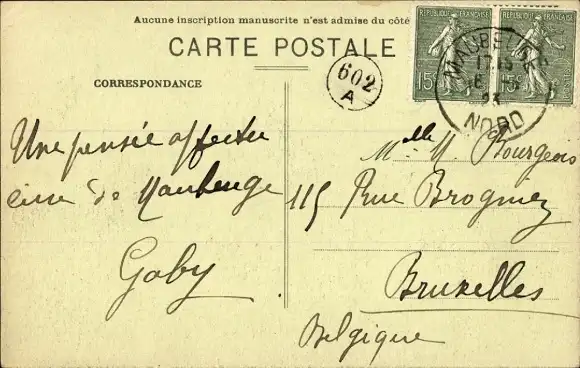 Aucune inscription manuscrite n'est admise du côté
CARTE POSTALE
CORRESPONDANCE
602
A
REPUBLIQUE FRANÇAISE
15c
REPUBLIQUE FRANÇAISE
15c
MAUBEUGE
NORD
Une pensée affectu
euse de Maubeuge
Gaby
Melle M. Bourgeois
115 Rue Brogniez
Bruxelles
Belgique